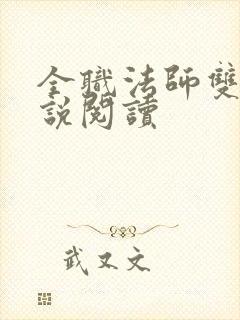 全職法師雙
說閱讀
武文文